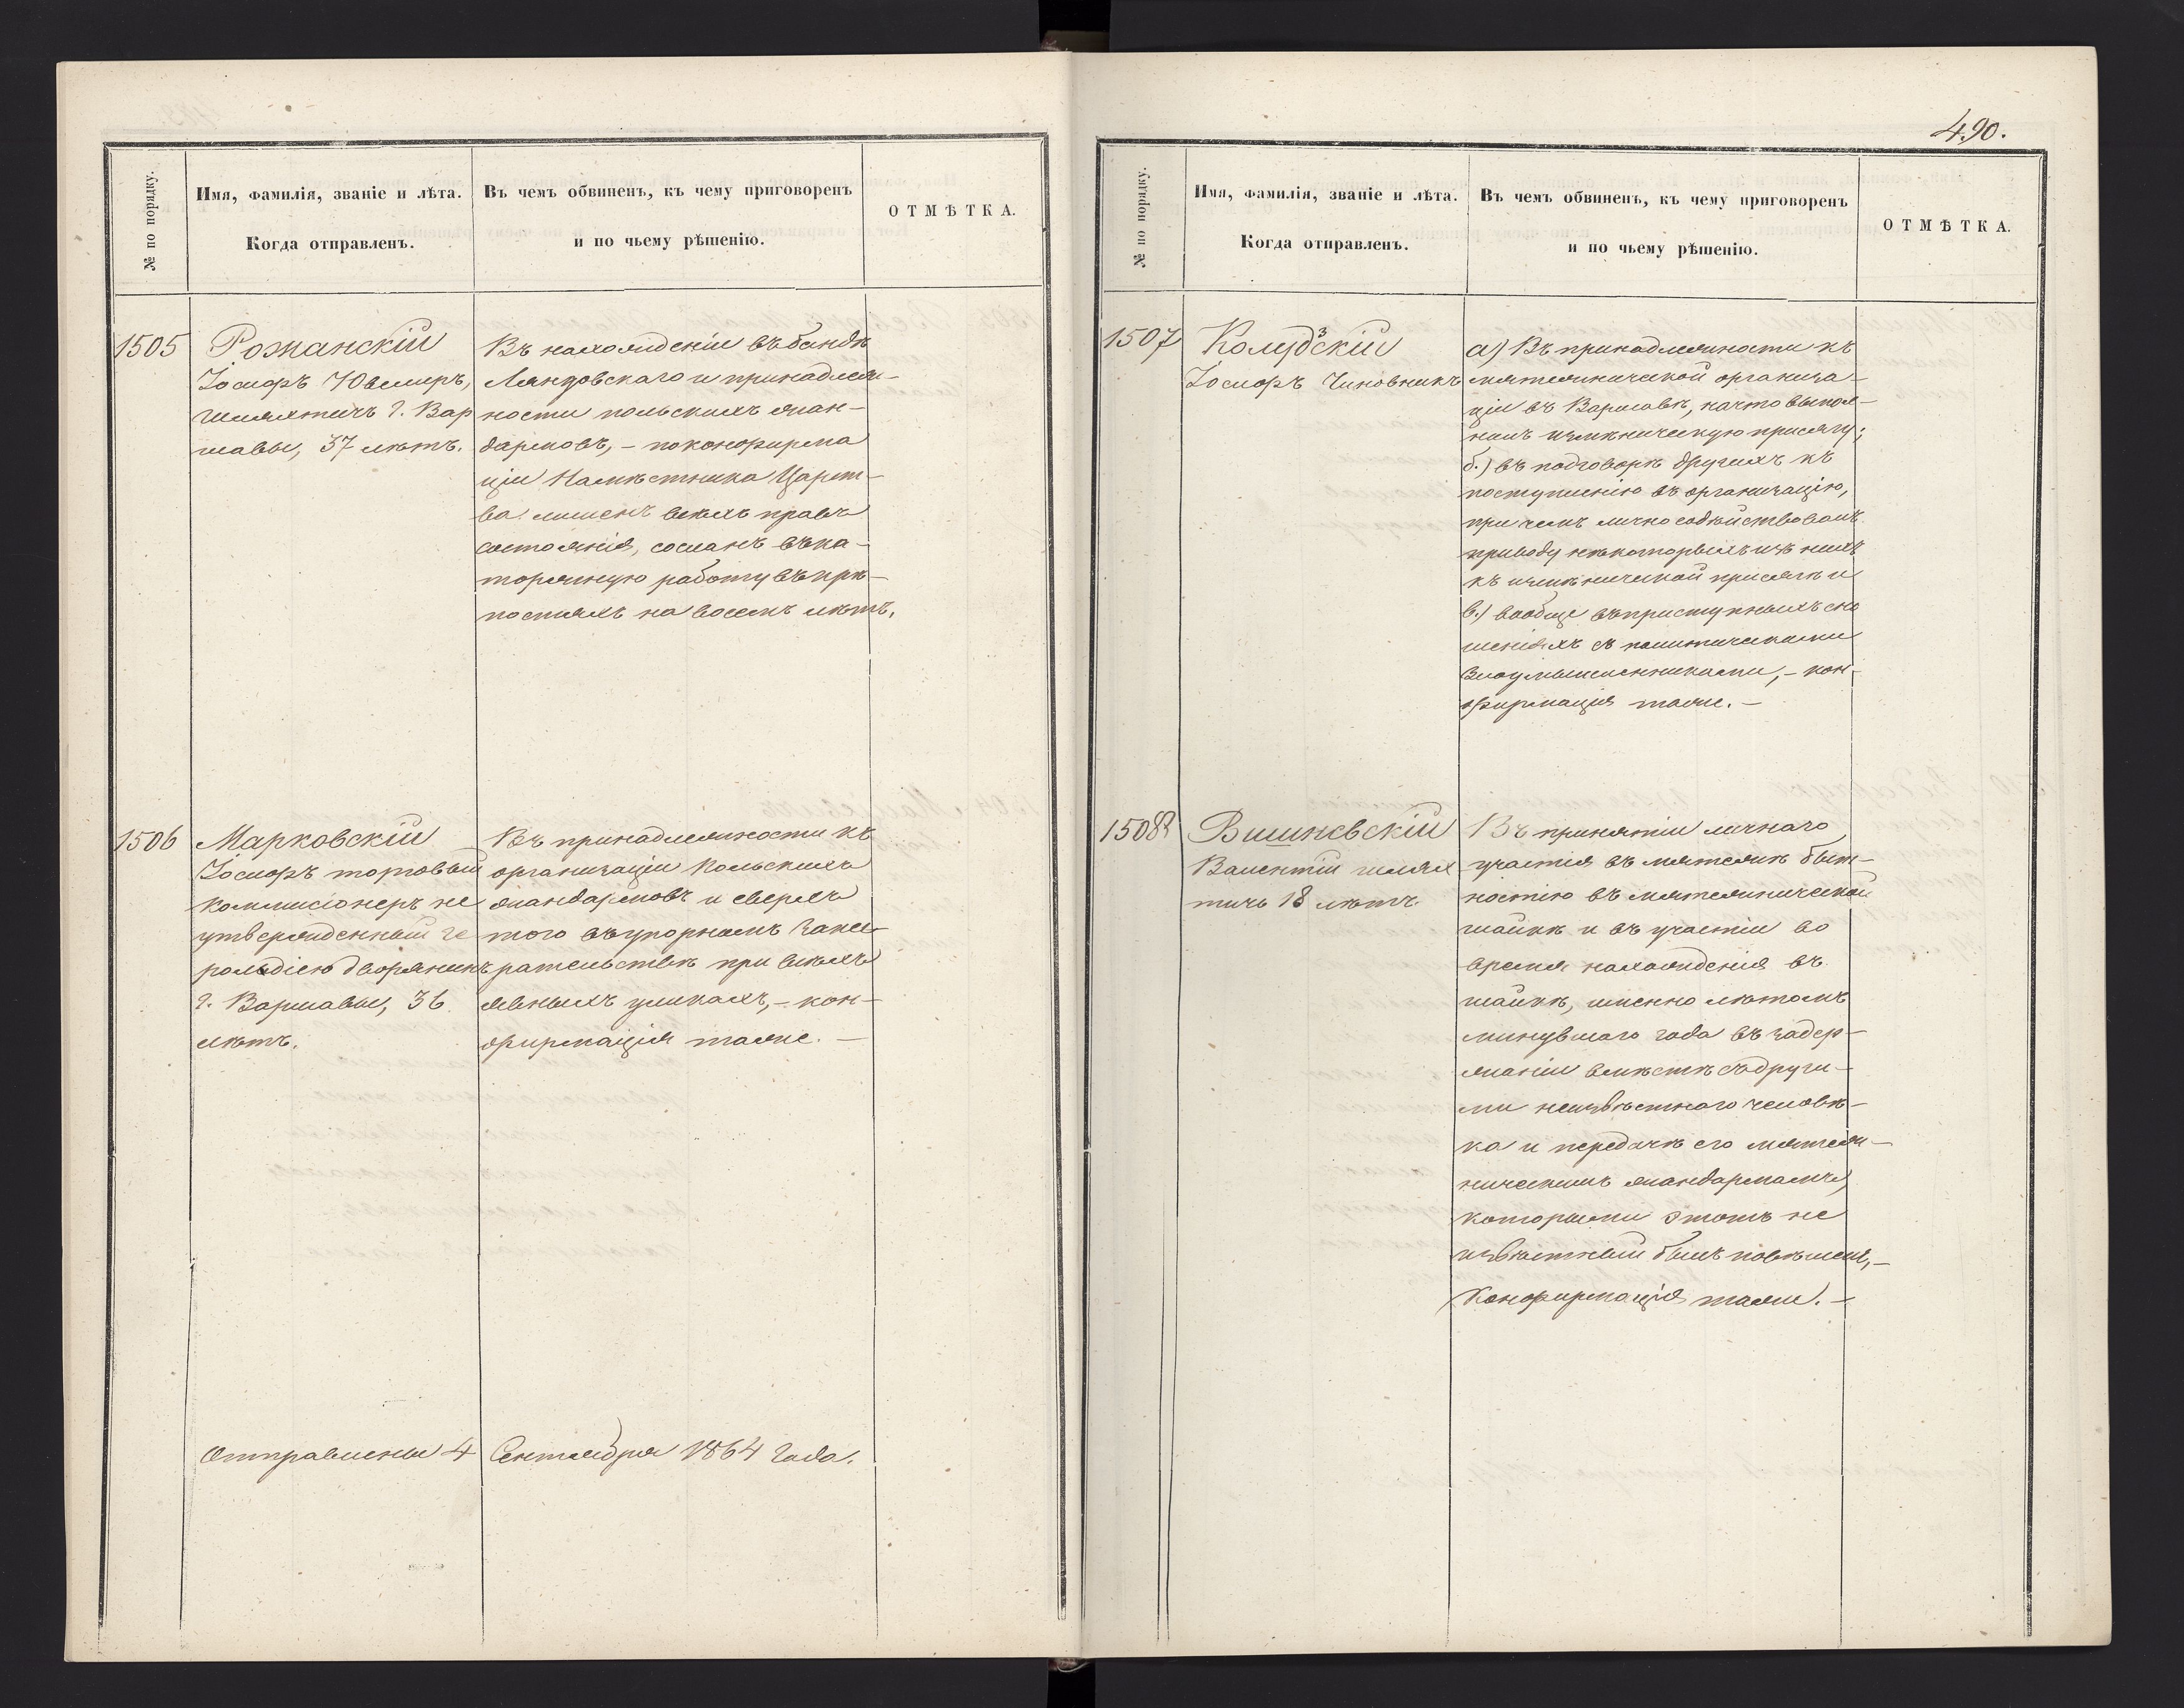 № по порядку.
Имя, фамилія, званіе и лѣта.
Когда отправленъ.
Въ чемъ обвиненъ, къ чему приговоренъ
и по чьему рѣшенію.
ОТМѢТКА.
1505
Рожанскій
Іосифъ Ювелиръ,
шляхтичъ г. Вар
шавы, 37 лѣтъ.
Въ нахожденіи въ бандѣ
Ляндовскаго и принадлеж-
ности польскихъ жан-
дармовъ, – по конфирма
ціи Намѣстника Царст-
ва лишенъ всѣхъ правъ
состоянія, сосланъ въ ка-
торжную работу въ крѣ-
постяхъ на восемь лѣтъ.
1506
Марковскій
Іосифъ торговый
коммисіонеръ не
утвержденный Ге
рольдіею дворянинъ
г. Варшавы, 36
лѣтъ.
Въ принадлежности къ
организаціи Польскихъ
жандармовъ и сверхъ
того въ упорномъ запи-
рательствѣ при всѣхъ
явныхъ уликахъ, – кон-
фирмація таже. –
Отправлены 4 Сентября 1864 года.
490.
№ по порядку.
Имя, фамилія, званіе и лѣта.
Когда отправленъ.
Въ чемъ обвиненъ, къ чему приговоренъ
и по чьему рѣшенію.
ОТМѢТКА.
1507
Колудзскій
Іосифъ Чиновникъ
а) Въ принадлежности къ
мятежнической организа-
ціи въ Варшавѣ, на что выпол-
нилъ измѣнническую присягу;
б.) въ подговорѣ другихъ къ
поступленію въ организацію,
при чемъ лично содѣйствовалъ
приводу нѣкоторыхъ изъ нихъ
къ измѣннической присягѣ и
в.) вообще въ приступныхъ сно
шеніяхъ съ политическими
злоумышленниками, – кон-
фирмація таже. –
1508
Вишневскій
Валентій шлях
тичъ 18 лѣтъ.
Въ принятіи личнаго
участія въ мятежѣ быт-
ностію въ мятежнической
шайкѣ и въ участіи во
время нахожденія въ
шайкѣ, именно лѣтомъ
минувшаго года въ задер-
жаніи вмѣстѣ съ други-
ми неизвѣстнаго человѣ-
ка и передачѣ его мятеж-
ническимъ жандармамъ,
которыми этотъ не
извѣстный былъ повѣшенъ, –
Конфирмація таже. –